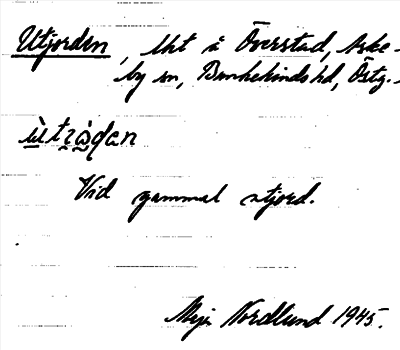 Utjorden, lht å Överstad, Aske-
by sn, Bankekinds hd, Östg.
Vid gammal utjord.
Nordlund 1945.